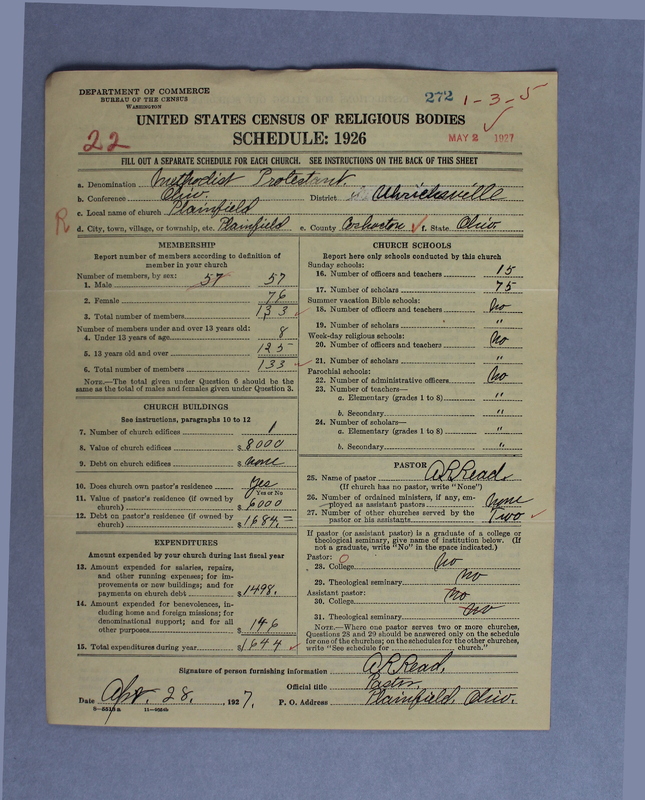 DEPARTMENT OF COMMERCE
BUREAU OF THE CENSUS
WASHINGTON
272 1-3-5
UNITED STATES CENSUS OF RELIGIOUS BODIES
22 SCHEDULE: 1926 MAY 2 1927
FILL OUT A SEPARATE SCHEDULE FOR EACH CHURCH. SEE INSTRUCTIONS ON THE BACK OF THIS SHEET
a. Denomination Methodist Protestant.
b. Conference Ohio. District Uhrichsville
c. Local name of church Plainfield
R d. City, town, village, or township, etc. Plainfield e. County Coshocton f. State Ohio
MEMBERSHIP
Report number of members according to definition of
member in your church
Number of members, by sex:
1. Male 57 57
2. Female 76
3. Total number of members 133
Number of members under and over 13 years old:
4. Under 13 years of age 8
5. 13 years old and over 125
6. Total number of members 133
NOTE.—The total given under Question 6 should be the
same as the total of males and females given under Question 3.
CHURCH BUILDINGS
See instructions, paragraphs 10 to 12
7. Number of church edifices 1
8. Value of church edifices $ 8000
9. Debt on church edifices $ none
10. Does church own pastor's residence? Yes
Yes or No
11. Value of pastor's residence (if owned by
church) $ 6000
12. Debt on pastor's residence (if owned by
church) $ 1684.=
EXPENDITURES
Amount expended by your church during last fiscal year
13. Amount expended for salaries, repairs,
and other running expenses; for im-
provements or new buildings; and for
payments on church debt $ 1498.
14. Amount expended for benevolences, in-
cluding home and foreign missions; for
denominational support; and for all
other purposes $ 146
15. Total expenditures during year $ 1644
CHURCH SCHOOLS
Report here only schools conducted by this church
Sunday schools:
16. Number of officers and teachers 15
17. Number of scholars 75
Summer vacation Bible schools:
18. Number of officers and teachers no
19. Number of scholars "
Week-day religious schools:
20. Number of officers and teachers no
21. Number of scholars "
Parochial schools:
22. Number of administrative officers no
23. Number of teachers—
a. Elementary (grades 1 to 8) "
b. Secondary "
24. Number of scholars—
a. Elementary (grades 1 to 8) "
b. Secondary "
PASTOR
25. Name of pastor A R Read.
(If church has no pastor, write "None")
26. Number of ordained ministers, if any, em-
ployed as assistant pastors none
27. Number of other churches served by the
pastor or his assistants Two
If pastor (or assistant pastor) is a graduate of a college or
theological seminary, give name of institution below. (If
not a graduate, write "No" in the space indicated.)
Pastor: O
28. College no
29. Theological seminary no
Assistant pastor:
30. College no
31. Theological seminary no
NOTE.—Where one pastor serves two or more churches,
Questions 28 and 29 should be answered only on the schedule
for one of the churches; on the schedules for the other churches,
write "See schedule for church."
Signature of person furnishing information A R Read.
Official title Pastor.
Date Apr. 28. , 1927. P. O. Address Plainfield, Ohio.